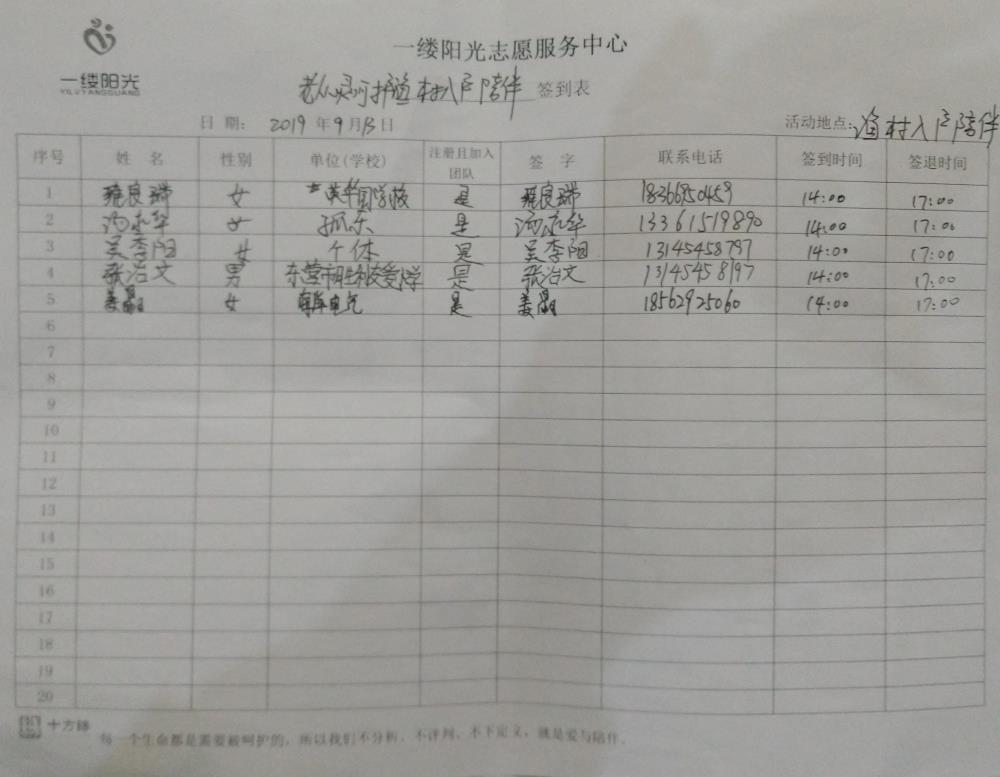 一缕阳光
YILVYANGGUANG
一缕阳光志愿服务中心
老人 村入户陪伴 签到表
日 期: 2019 年 9 月 13 日 活动地点: 渔村入户陪伴
序号 姓 名 性别 单位(学校) 注册且加入团队 签 字 联系电话 签到时间 签退时间
1 良瑞 女 学校 是 良瑞 18366850459 14:00 17:00
2 汤永华 女 孤东 是 汤永华 13361519890 14:00 17:00
3 吴季阳 女 个体 是 吴季阳 13145458797 14:00 17:00
4 张冶文 男 东营市 学 是 张冶文 13145458197 14:00 17:00
5 姜晶 女 电气 是 姜晶 18562925060 14:00 17:00
6
7
8
9
10
11
12
13
14
15
16
17
18
19
20
十方缘
每一个生命都是需要被呵护的,所以我们不分析、不评判、不下定义,就是爱与陪伴。